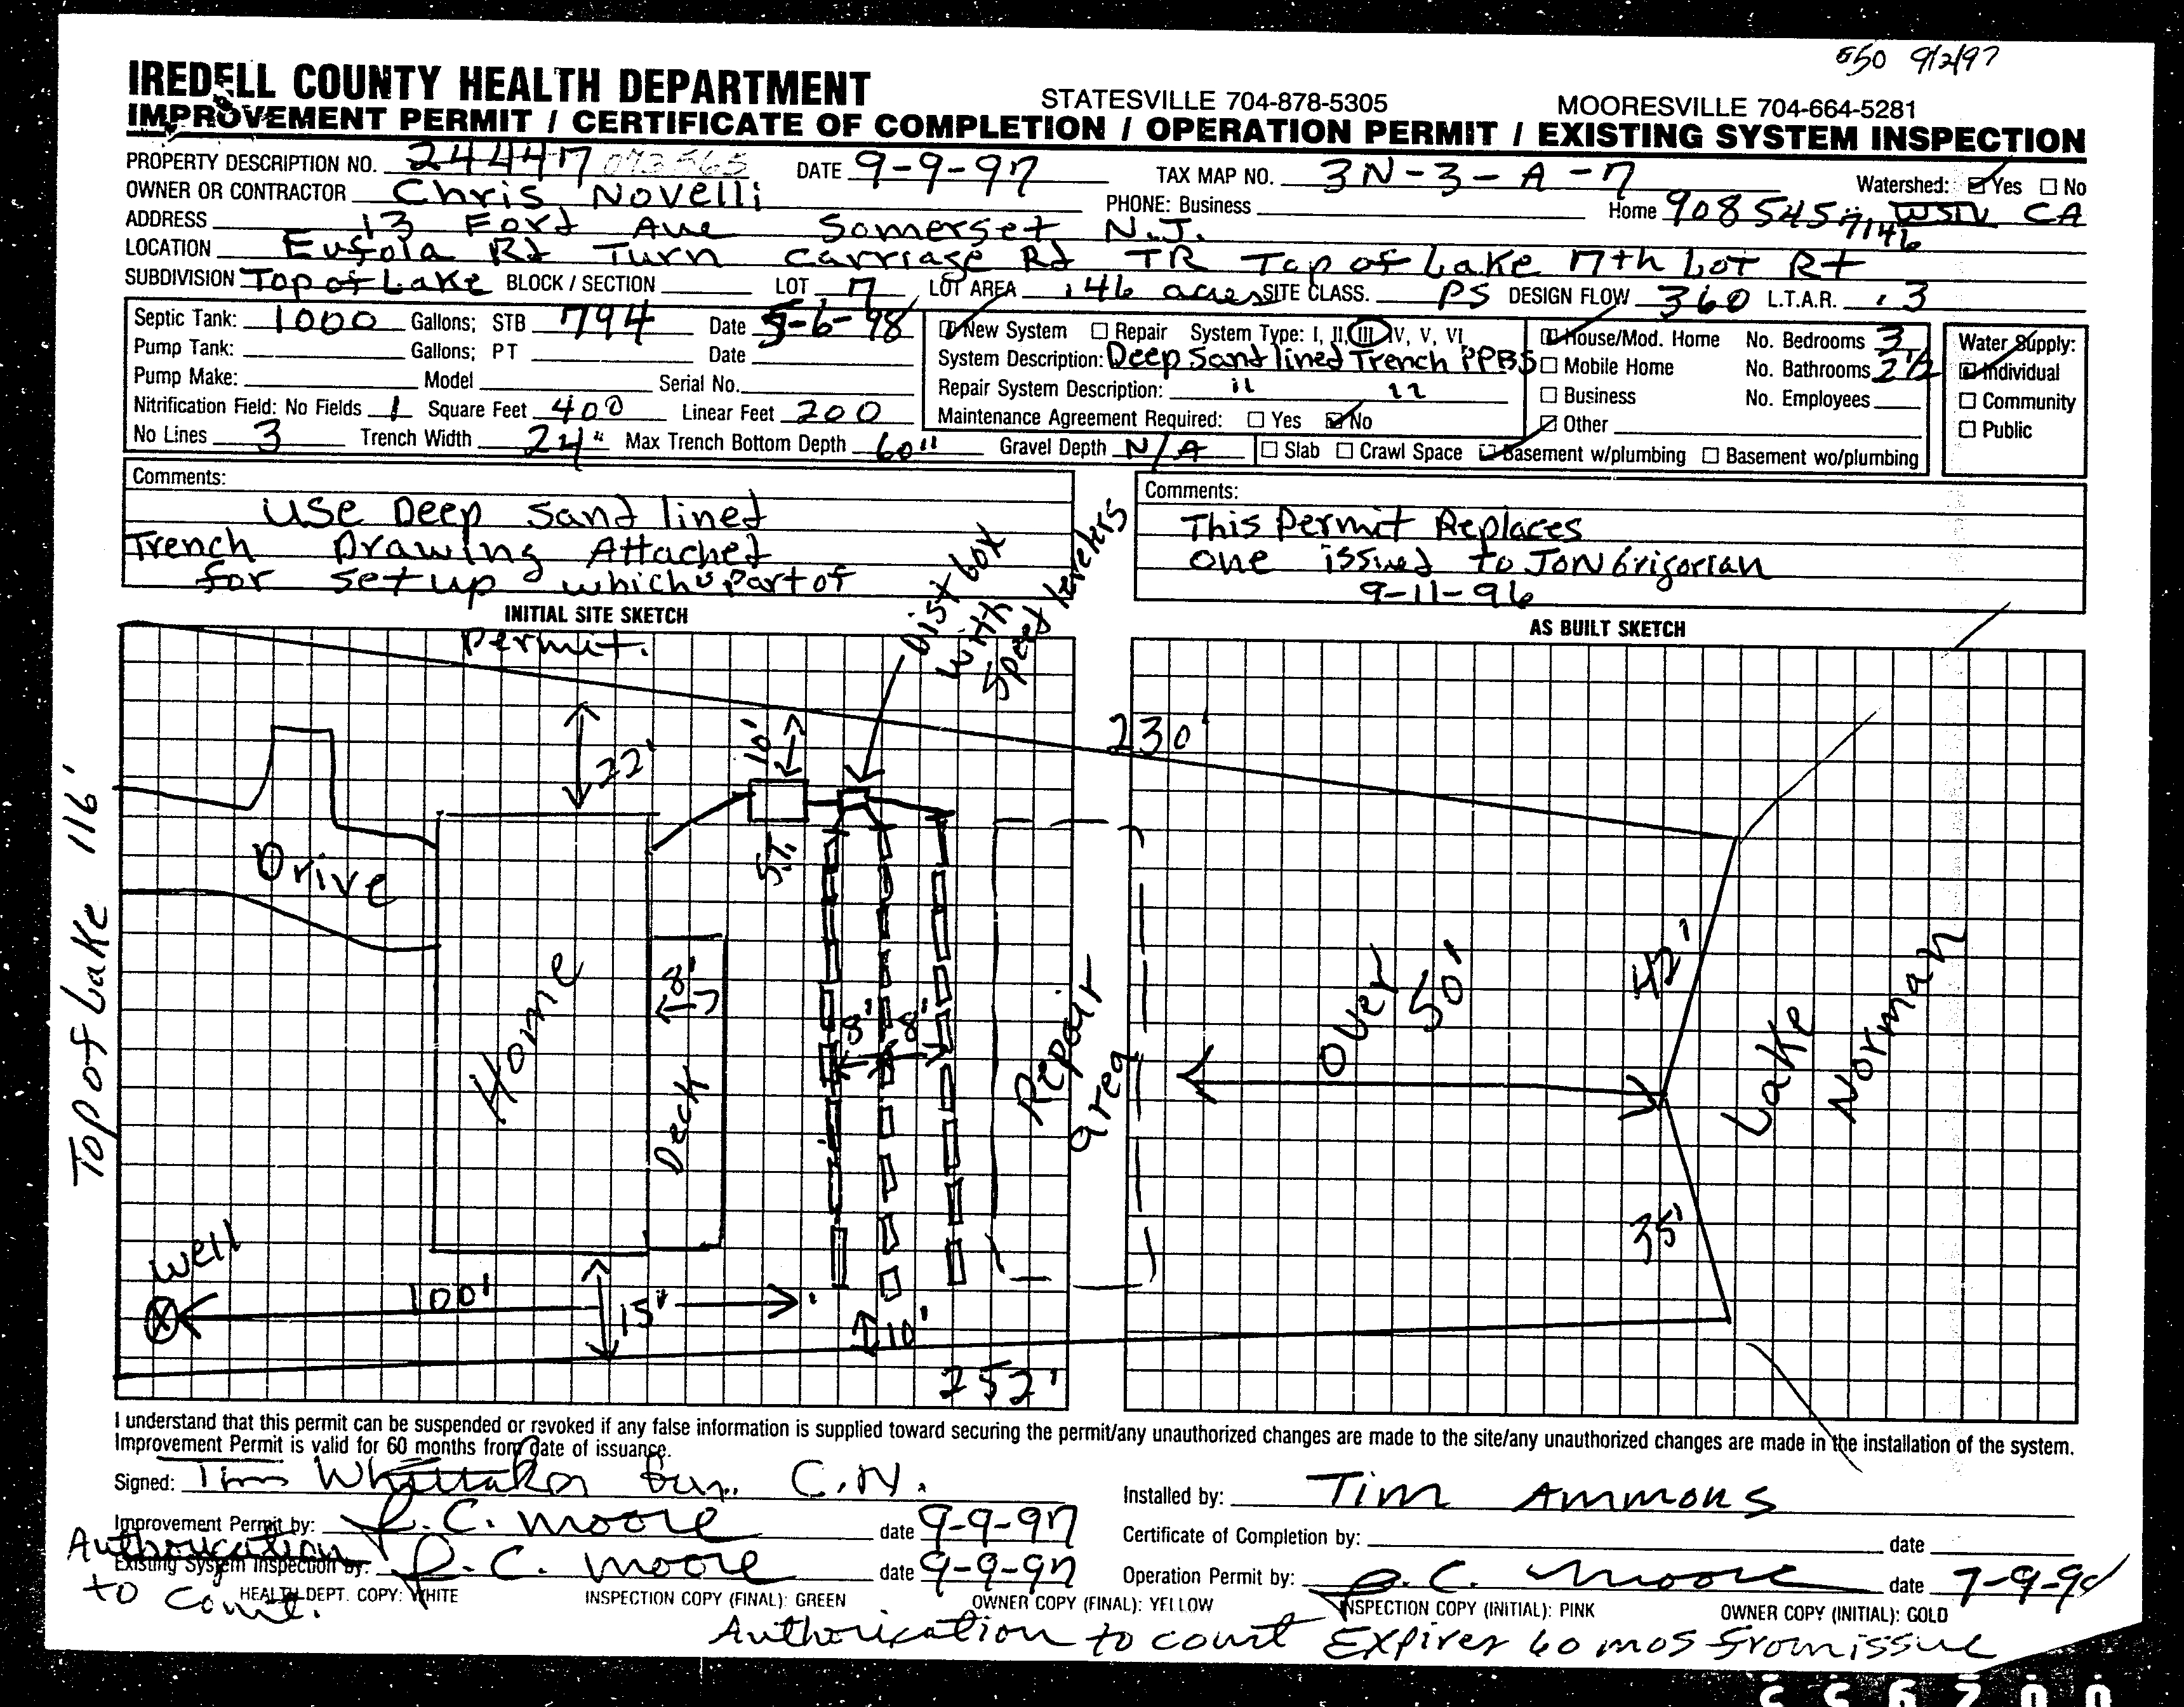 $50 9/2/97
IREDELL COUNTY HEALTH DEPARTMENT STATESVILLE 704-878-5305 MOORESVILLE 704-664-5281
IMPROVEMENT PERMIT / CERTIFICATE OF COMPLETION / OPERATION PERMIT / EXISTING SYSTEM INSPECTION
PROPERTY DESCRIPTION NO. 24447 DATE 9-9-97 TAX MAP NO. 3N-3-A-7 Watershed: Yes No
OWNER OR CONTRACTOR Chris Novelli PHONE: Business Home 908 545 7146 CA
ADDRESS 13 Ford Ave Somerset N.J.
LOCATION Eufola Rd Turn Carriage Rd TR Top of Lake 7th Lot Rt
SUBDIVISION Top of Lake BLOCK / SECTION LOT 7 LOT AREA .46 acres SITE CLASS. PS DESIGN FLOW 360 L.T.A.R. .3
Septic Tank: 1000 Gallons; STB 794 Date 5-6-98
Pump Tank: Gallons; PT Date
Pump Make: Model Serial No.
Nitrification Field: No Fields 1 Square Feet 400 Linear Feet 200
No Lines 3 Trench Width 24" Max Trench Bottom Depth 60" Gravel Depth N/A
New System Repair System Type: I, II, III, IV, V, VI
System Description: Deep Sand lined Trench PPBS
Repair System Description: " "
Maintenance Agreement Required: Yes No
House/Mod. Home No. Bedrooms 3
Mobile Home No. Bathrooms 2 1/2
Business No. Employees
Other
Slab Crawl Space Basement w/plumbing Basement wo/plumbing
Water Supply:
Individual
Community
Public
Comments:
Use Deep Sand lined
Trench Drawing Attached
for setup which is Part of
Permit.
Comments:
This Permit Replaces
one issued to Jon Grigorian
9-11-96
INITIAL SITE SKETCH
AS BUILT SKETCH
Dist box
with
Speed levelers
230'
22'
10'
S.T.
Drive
Top of Lake 116'
Home
8'
Deck
8' 8'
Repair
area
Over
50'
42'
Lake
Norman
35'
Well
100'
15'
10'
252'
I understand that this permit can be suspended or revoked if any false information is supplied toward securing the permit/any unauthorized changes are made to the site/any unauthorized changes are made in the installation of the system.
Improvement Permit is valid for 60 months from date of issuance.
Signed: Tim Whittaker for C.N.
Installed by: Tim Ammons
Improvement Permit by: R.C. Moore date 9-9-97
Certificate of Completion by: date
Authorization
to Const.
Existing System Inspection by: R.C. Moore date 9-9-97
Operation Permit by: R.C. Moore date 7-9-98
HEALTH DEPT. COPY: WHITE INSPECTION COPY (FINAL): GREEN OWNER COPY (FINAL): YELLOW INSPECTION COPY (INITIAL): PINK OWNER COPY (INITIAL): GOLD
Authorization to const Expires 60 mos from issue